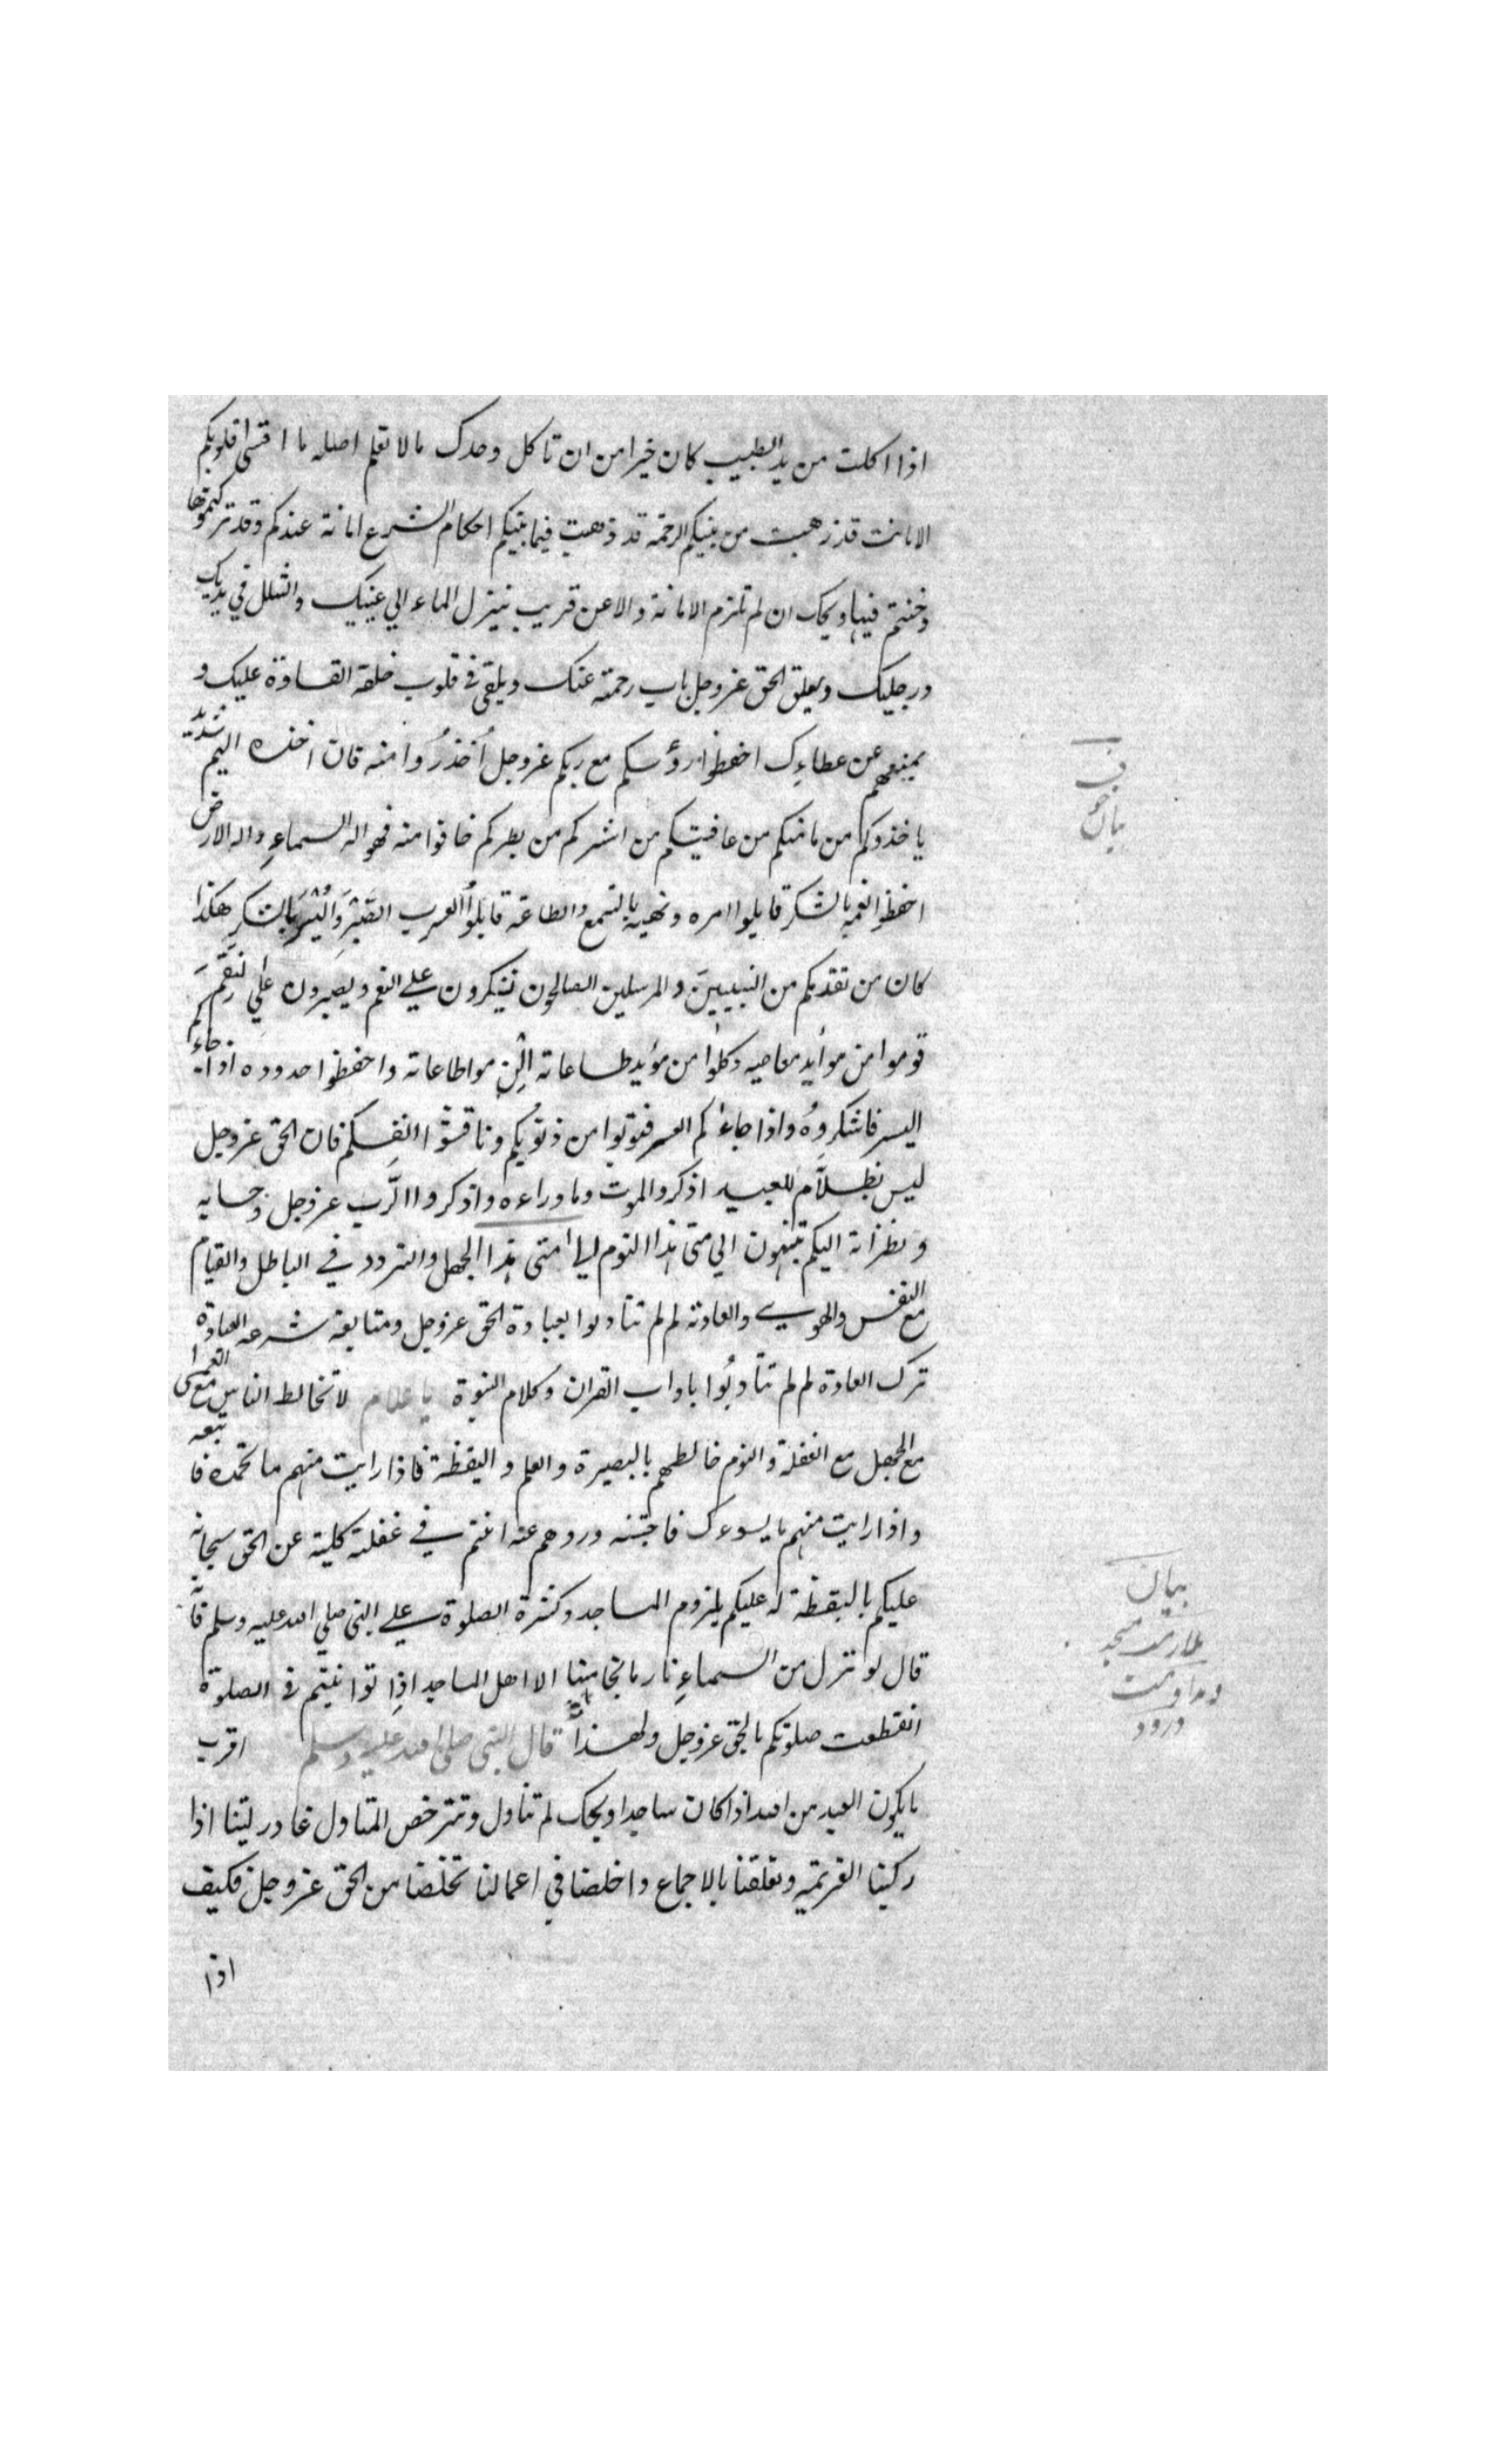 اذا اكلت من يد الطبيب كان خيرا من ان تاكل وحدك ما لا تعلم اصله ما اقسى قلوبكم
الامانت قد ذهبت من بينكم الرحمة قد ذهبت فيما بينكم احكام الشرع امانة عندكم وقد تركتموها
وخنتم فيها ويحك ان لم تلزم الامانة والا عن قريب ينزل الماء الي عينيك والشلل في يديك
ورجليك ويغلق الحق عزوجل باب رحمته عنك ويلقي في قلوب خلقه القساوة عليك و
يمنعهم عن عطاءك احفظوا رؤسكم مع ربكم عزوجل أحذرُوا منه فان اخذه اليم شديد
ياخذوكم من مامنكم من عافيتكم من اشركم من بطركم خافوا منه فهو اله السماءِ واله الارض
احفظوا نعمه بالشكر قابلوا امره ونهيه بالسمع والطاعة قابلوُا العسر بالصَبرَ واليُسَر بالشكر هكذا
كان من تقدمكم من النبيين والمرسلين الصالحون يشكرون علي النعم ويصبرون علي النقم
قوموا من موأيد معاصيه وكلوا من مؤيد طاعاته الزموا طاعاته واحفظوا حدوده اذا جاءكم
اليسر فاشكروهُ واذا جاءكم العسر فتوبوا من ذنوبكم وناقشوا انفسكم فان الحق عزوجل
ليس بظلاَّم للعبيد اذكروالموت وما وراءه واذكروا الرَّب عزوجل وحسابه
ونظراته اليكم تنبهون الي متى هذا النوم الي متى هذا الجهل والتردد في الباطل والقيام
مع النفس والهوي والعادة لم لم تتأدبوا بعبادة الحق عزوجل ومتابعة شرعه العبادة
ترك العادة لم لم تتأدبُوا باداب القران وكلام النبوة يا غلام لا تخالط الناس مع العمى
مع الجهل مع الغفلة والنوم خالطهم بالبصيرة والعلم واليقظة فاذا رايت منهم ما تحمده فاتبعه
واذا رايت منهم ما يسوءك فاجتنبه وردهم عنه انتم في غفلة كلية عن الحق سبحانه
عليكم باليقظة له عليكم بلزوم المساجد وكثرة الصلوة علي النبي صلي الله عليه وسلم فانه
قال لو نزل من السماءِ نار ما نجا منها الا اهل المساجد اذا توانيتم في الصلوة
انقطعت صلوتكم بالحق عزوجل ولهذا قال النبي صلي الله عليه وسلم اقرب
ما يكون العبد من الله اذا كان ساجدا ويحك لم تتأول وتترخص المتاول غادر ليتنا اذا
ركبنا العزيمة وتعلقنا بالاجماع واخلصنا في اعمالنا تخلصنا من الحق عزوجل فكيف
اذا
بيان
ملازمت مسجد
ومداومت
درود